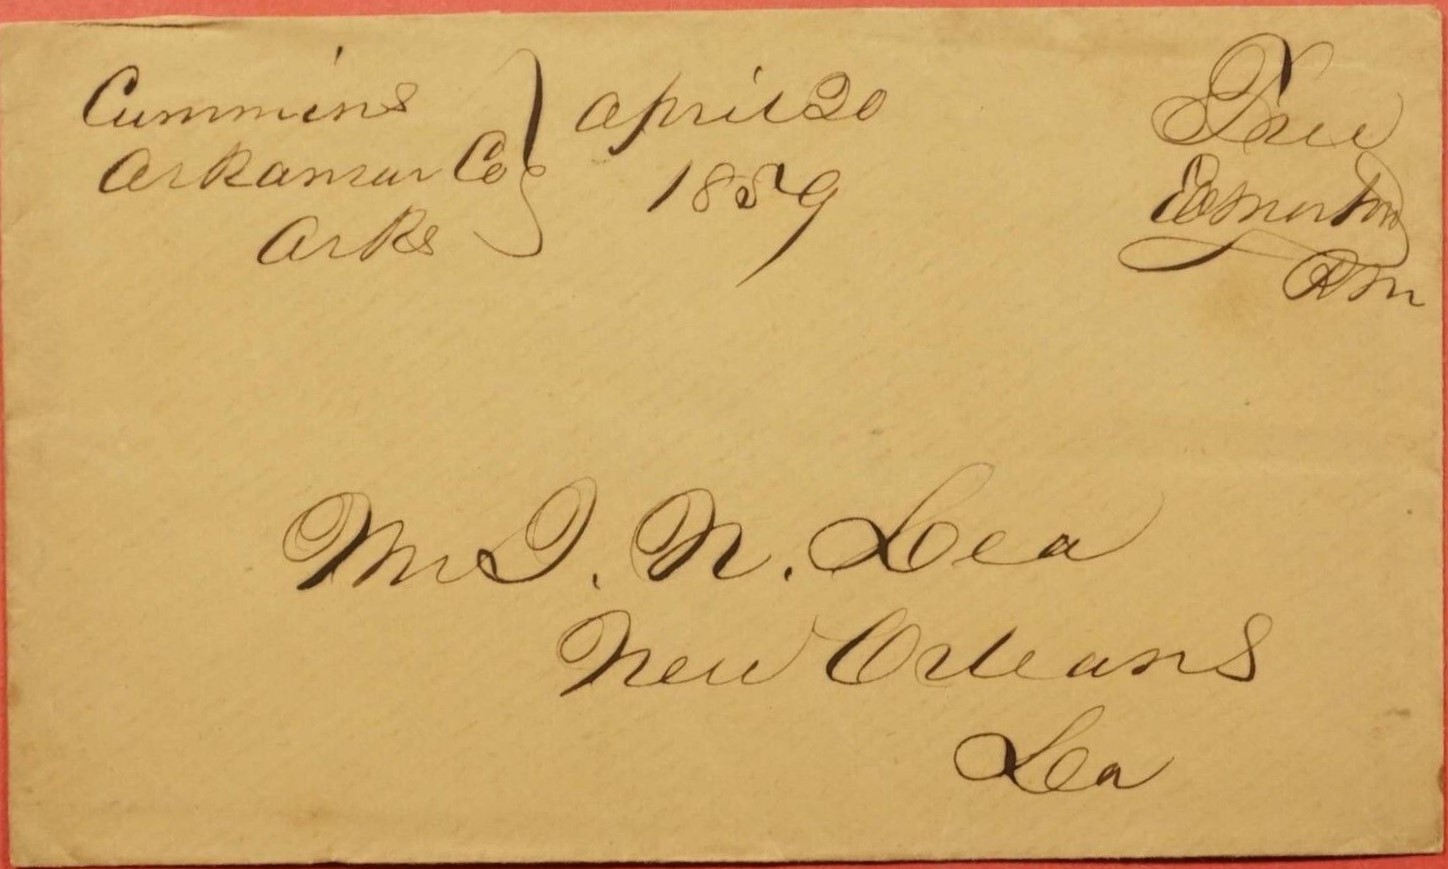 Cummins
Arkansas Co
Arks
April 20
1859
Free
Edmerton
PM
Mr D. N. Lea
New Orleans
Lea